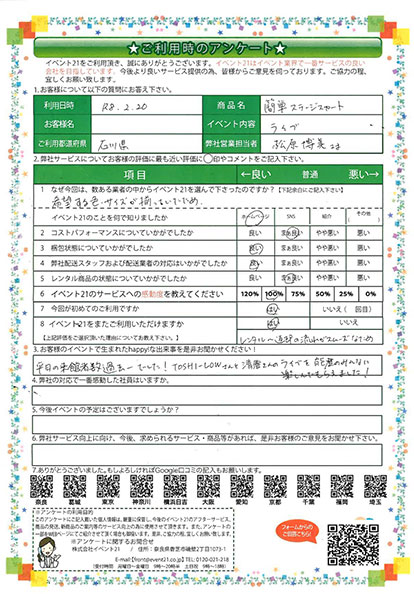 ★ご利用時のアンケート★
イベント21をご利用頂き、誠にありがとうございます。イベント21はイベント業界で一番サービスの良い
会社を目指しています。今後より良いサービス提供の為、皆様からご意見を伺っております。ご協力の程、
宜しくお願い致します。
1.お客様について以下の質問にお答え下さい。
ご利用日時 R8.2.20 商品名 簡単ステージスカート
お客様名 イベント内容 ライブ
ご利用都道府県 石川県 弊社営業担当者名 松原 博美さま
2.弊社サービスについてお客様の評価に最も近い評価に〇印やコメントをご記入下さい。
項目 ←良い 普通 悪い→
1 なぜ今回は、数ある業者の中からイベント21を選んで下さったのですか?【下記余白にご記入下さい】
希望する色・サイズが揃っていたため。
イベント21のことを何で知りましたか ホームページ SNS 紹介 (その他 )
2 コストパフォーマンスについていかがでしたか 良い まぁ良い やや悪い 悪い
3 梱包状態についていかがでしたか 良い まぁ良い やや悪い 悪い
4 弊社配送スタッフおよび配送業者の対応はいかがでしたか 良い まぁ良い やや悪い 悪い
5 レンタル商品の状態についていかがでしたか 良い まぁ良い やや悪い 悪い
6 イベント21のサービスへの感動度を教えてください 120% 100% 75% 50% 25% 0%
7 今回が初めてのご利用ですか はい いいえ( 回目)
8 イベント21をまたご利用いただけますか はい いいえ
【上記評価をご選択頂いた理由についてお教え下さい】 レンタル〜返却の流れがスムーズなため
3.お客様のイベントで生まれたhappyな出来事を是非お聞かせください!
平日の来館者数過去一でした!TOSHI-LOWさんと清原さんのライブを能登のみんなに
楽しんでもらえました!
4.弊社の対応で一番感動した社員はいますか。
5.今後イベントの予定はございますでしょうか?
6.弊社サービス向上に向け、今後、求められるサービス・商品等があれば、是非お客様のご意見をお聞かせ下さい。
7.ありがとうございました。もしよろしければGoogle口コミの記入もお願いします。
奈良 葛城 東京 神奈川 横浜日吉 大阪 愛知 京都 千葉 福岡 埼玉
★アンケートの利用目的
★アンケートに関するお問合せ
株式会社イベント21 / 住所:奈良県香芝市磯壁2丁目1073-1
E-mail:front@event21.co.jp TEL:0120-021-218
フォームからの
ご回答こちら!